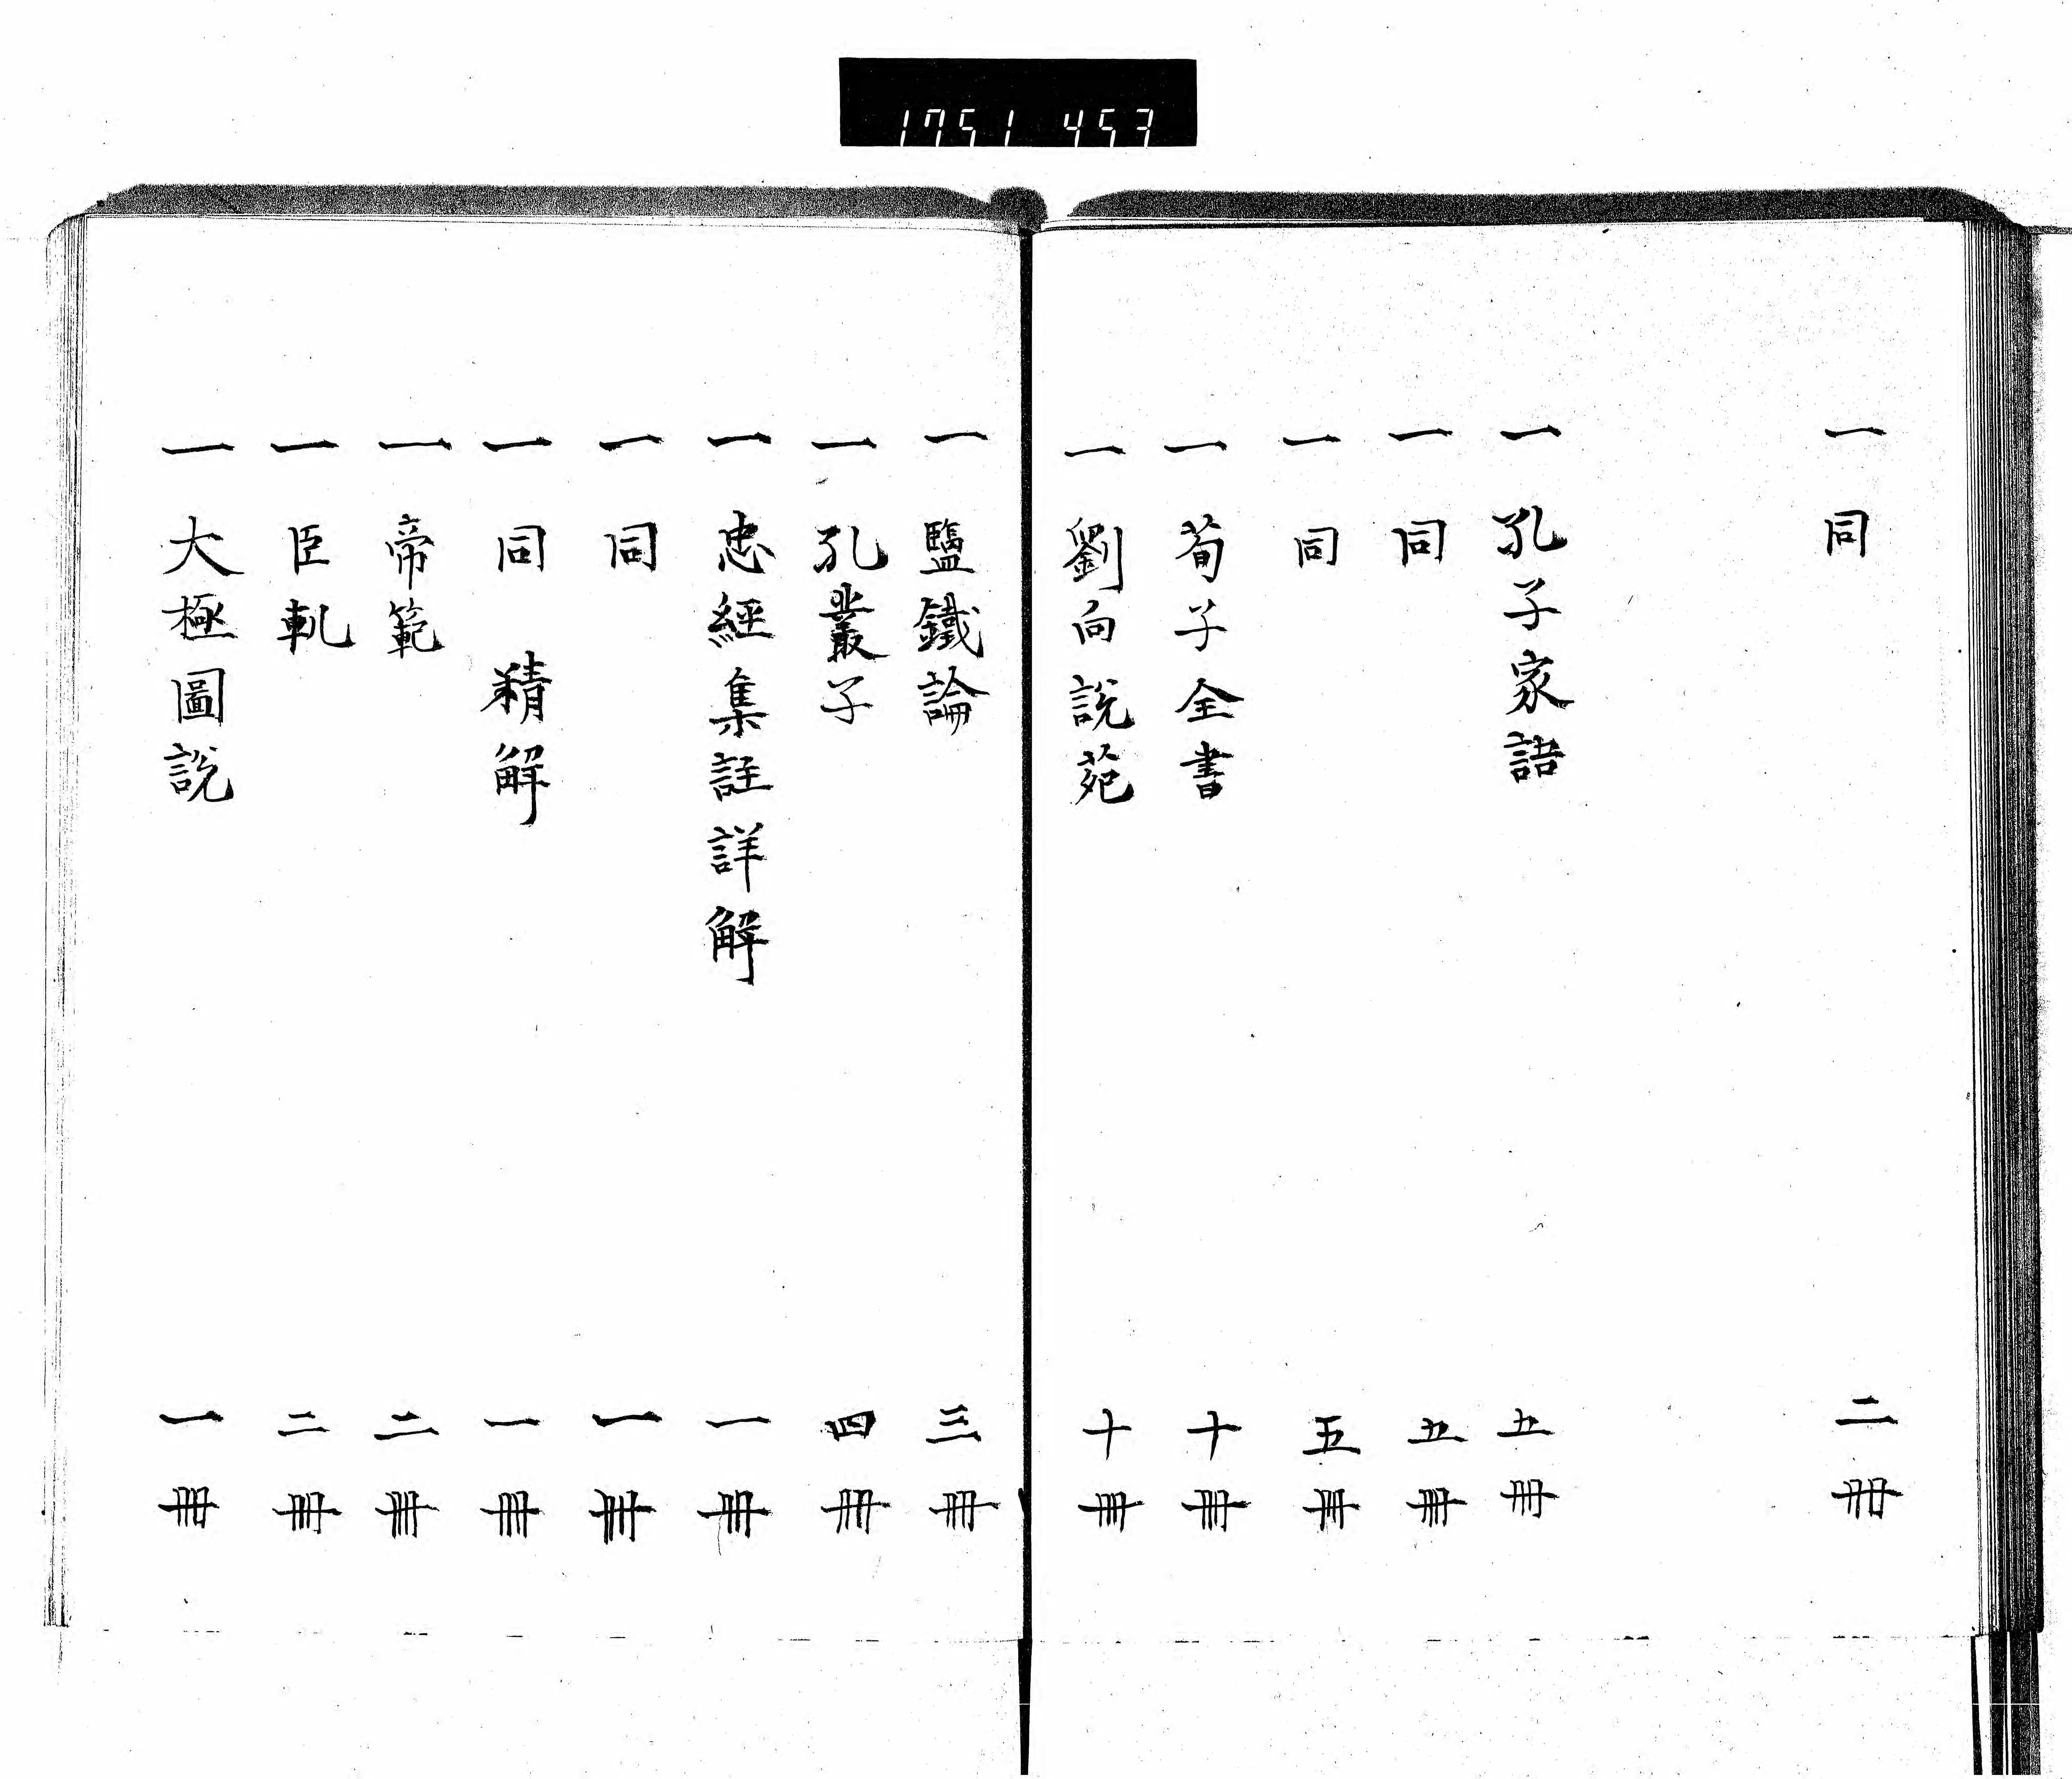 1751 453
一 同 二冊
一 孔子家語 五冊
一 同 五冊
一 同 五冊
一 荀子全書 十冊
一 劉向說苑 十冊
一 鹽鐵論 三冊
一 孔叢子 四冊
一 忠經集註詳解 一冊
一 同 一冊
一 同 精解 一冊
一 帝範 二冊
一 臣軌 二冊
一 大極圖說 一冊